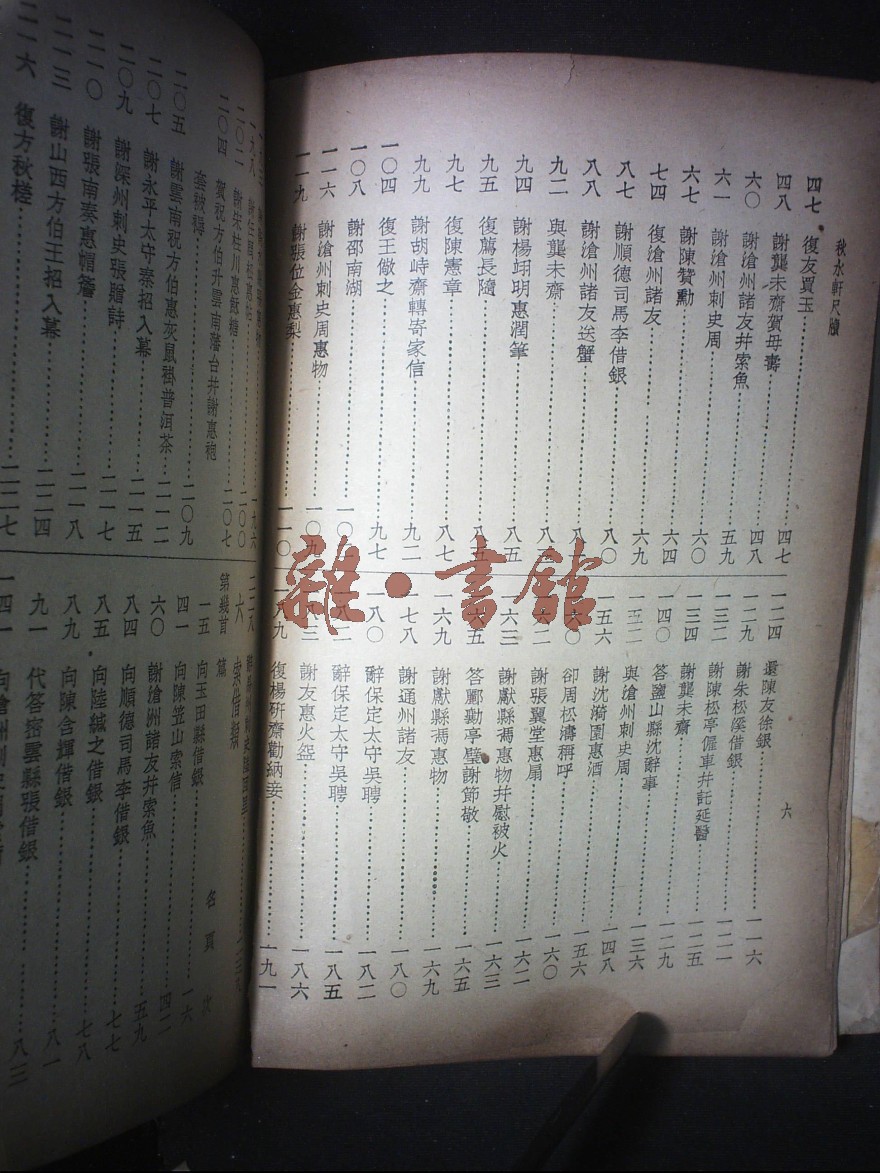 秋水軒尺牘
四七 復友買玉 四七
四八 謝龔未齋賀母壽 四八
六〇 謝滄州諸友幷索魚 五九
六一 謝滄州刺史周 六〇
六七 謝陳贊勳 六四
七四 復滄州諸友 六九
八七 謝順德司馬李借銀 八〇
八八 謝滄州諸友送蟹
九二 與龔未齋
九四 謝楊翊明惠潤筆 八五
九五 復薦長隨 八五
九七 復陳憲章 八七
九九 謝胡峙齋轉寄家信 九二
一〇四 復王儆之 九七
一〇八 謝邵南湖
一一六 謝滄州刺史周惠物 一〇九
一一九 謝張位全惠梨 一一〇
一二四 還陳友徐銀 一一六
一二九 謝朱松溪借銀 一二一
一三二 謝陳松亭僱車幷託延醫 一二五
一三四 謝龔未齋 一二九
答鹽山縣沈辭事 一三六
一五二 與滄州刺史周 一四八
一五六 謝沈漪園惠酒 一五六
卻周松濤稱呼
謝張翼堂惠扇 一六〇
一六三 謝獻縣馮惠物幷慰被火 一六二
答酈勤亭璧謝節敬 一六三
一六九 謝獻縣馮惠物 一六五
一七八 謝通州諸友 一六九
一八〇 辭保定太守吳聘 一八〇
辭保定太守吳聘 一八二
謝友惠火盌 一八五
一八九 復楊硏齋勸納妾 一八六
一九一
六
二〇二 謝朱桂川惠飲糟 二〇〇
二〇四 賀祝方伯升雲南藩台幷謝惠袍套被褥 二〇七
二〇五 謝雲南祝方伯惠灰鼠褂普洱茶 二〇九
二〇七 謝永平太守秦招入幕 二一二
二〇九 謝深州刺史張贈詩 二一五
二一〇 謝張南奏惠帽簷 二一七
二一三 謝山西方伯王招入幕 二一八
二一六 復方秋槎 二二四
二二七
六 索借類
第幾首 篇 名 頁次
一五 向玉田縣借銀 一六
四一 向陳笠山索信 四二
六〇 謝滄洲諸友幷索魚 五九
八四 向順德司馬李借銀 七七
八五 向陸緘之借銀 七八
八九 向陳含輝借銀 八一
九一 代答密雲縣張借銀 八三
一四一
雜·書館